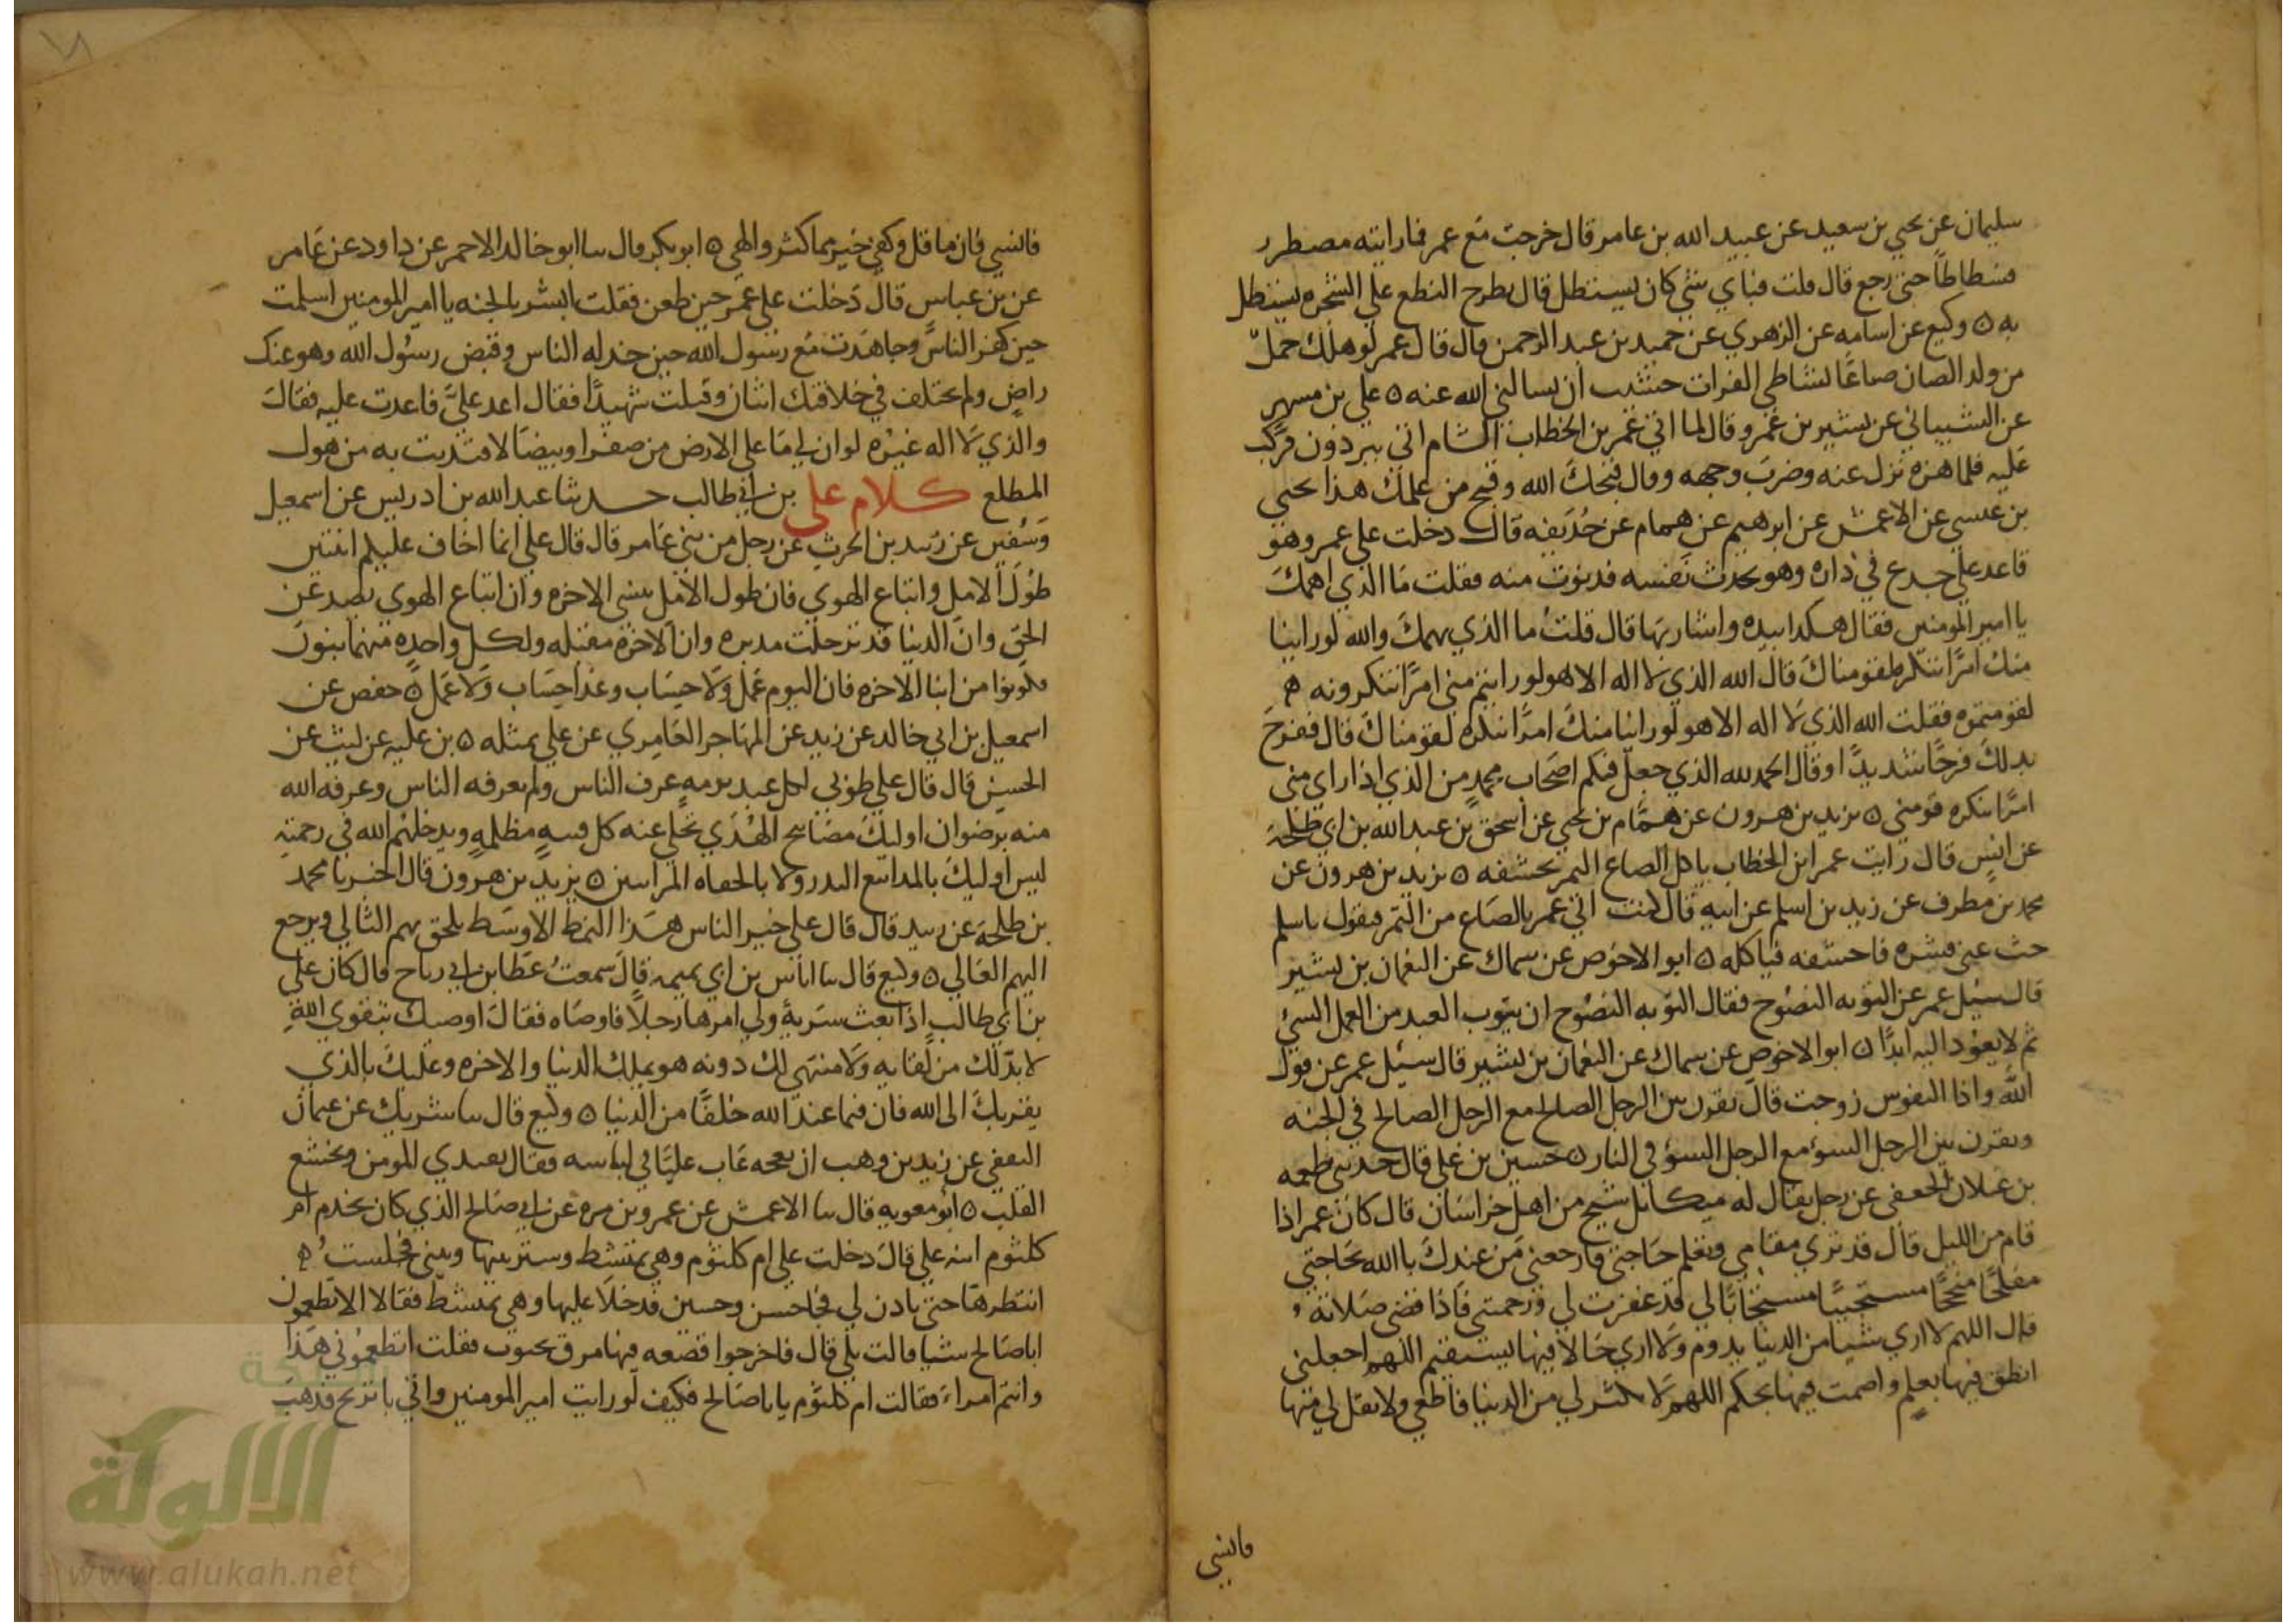 سليمان عن يحيي بن سعيد عن عبيد الله بن عامر قال خرجت مع عمر فما رايته مضطربا
فسطاطا حتى رجع قال قلت فباي شي كان يستظل قال يطرح النطع علي الشجره يستظل
به ٥ وكيع عن اسامه عن الزهري عن حميد بن عبد الرحمن قال قال عمر لو هلك حمل
من ولد الضان ضياعا بشاطي الفرات خشيت ان يسالني الله عنه ٥ علي بن مسهر
عن الشيباني عن يسير بن عمرو قال لما اتي عمر بن الخطاب الشام اتى ببرذون فركب
عليه فلما هزه نزل عنه وضرب وجهه وقال قبحك الله وقبح من علمك هذا يحيي
بن عيسي عن الاعمش عن ابرهيم عن همام عن حذيفه قال دخلت علي عمر وهو
قاعد علي جدع في داره وهو يحدث نفسه فدنوت منه فقلت ما الذي اهمك
يا امير المومنين فقال هكدا بيده واشار بها قال قلت ما الذي يهمك والله لو راينا
منك امرا ننكره لقومناك قال الله الذي لا اله الا هو لو رايتم مني امرا تنكرونه
لقومتموه فقلت الله الذي لا اله الا هو لو راينا منك امرا ننكره لقومناك قال ففرح
بدلك فرحا شديدا وقال الحمد لله الذي جعل فيكم اصحاب محمد من الذي اذا راي مني
امرا ينكره قومني ٥ يزيد بن هرون عن همام بن يحيي عن اسحق بن عبد الله بن ابي طلحة
عن انس قال رايت عمر ابن الخطاب ياكل الصاع التمر بحشفه ٥ يزيد بن هرون عن
محمد بن مطرف عن زيد بن اسلم عن ابيه قال كنت اتي عمر بالصاع من التمر فيقول ياسلم
حت عني قشره فاحشفه فياكله ٥ ابو الاحوص عن سماك عن النعمان بن بشير
قال سيل عمر عن التوبه النصوح فقال التوبه النصوح ان يتوب العبد من العمل السي
ثم لا يعود اليه ابدا ٥ ابو الاحوص عن سماك عن النعمان بن بشير قال سيل عمر عن قول
الله واذا النفوس زوجت قال يقرن بين الرجل الصالح مع الرجل الصالح في الجنه
ويقرن بين الرجل السوء مع الرجل السوء في النار ٥ حسين بن علي قال حدثني طعمه
بن غيلان الجعفي عن رجل يقال له ميكايل شيخ من اهل خراسان قال كان عمر اذا
قام من الليل قال قد ترى مقامي وتعلم حاجتي فارجعني من عندك يا الله بحاجتي
مفلحا منجحا مستجيبا مستجابا لي قد غفرت لي ورحمتني فاذا قضى صلاته
قال اللهم لا اري شيا من الدنيا يدوم ولا اري حالا فيها يستقيم اللهم اجعلني
انطق فيها بعلم واصمت فيها بحكم اللهم لا تكثر لي من الدنيا فاطغي ولا تقل لي منها
فانسي
فانسي فان ما قل وكفي خير مما كثر والهي ٥ ابو بكر قال سا ابو خالد الاحمر عن داود عن عامر
عن بن عباس قال دخلت علي عمر حين طعن فقلت ابشر بالجنه يا امير المومنين اسلمت
حين كفر الناس وجاهدت مع رسول الله حين خدله الناس وقبض رسول الله وهو عنك
راض ولم يختلف في خلافتك اثنان وقتلت شهيدا فقال اعد علي فاعدت عليه فقال
والذي لا اله غيره لو ان لي ما علي الارض من صفرا وبيضا لافتديت به من هول
المطلع كلام علي بن ابي طالب حدثنا عبد الله بن ادريس عن اسمعيل
وسفين عن زبيد بن الحرث عن رجل من بني عامر قال قال علي انما اخاف عليكم اثنتين
طول الامل واتباع الهوي فان طول الامل ينسي الاخره وان اتباع الهوي يصد عن
الحق وان الدنيا قد ترحلت مدبره وان الاخره مقبله ولكل واحده منهما بنون
فكونوا من ابنا الاخره فان اليوم عمل ولا حساب وغدا حساب ولا عمل ٥ حفص عن
اسمعيل بن ابي خالد عن زبيد عن المهاجر العامري عن علي بمثله ٥ بن عليه عن ليث عن
الحسن قال قال علي طوبي لكل عبد نومه عرف الناس ولم يعرفه الناس وعرفه الله
منه برضوان اوليك مصابيح الهدي تجلي عنه كل فتنه مظلمه ويدخلهم الله في رحمته
ليس اوليك بالمداييع البدر ولا بالجفاه المرايين ٥ يزيد بن هرون قال اخبرنا محمد
بن طلحة عن زبيد قال قال علي خير الناس هذا النمط الاوسط يلحق بهم التالي ويرجع
اليهم الغالي ٥ وكيع قال سا اياس بن ابي تميمه قال سمعت عطا بن ابي رباح قال كان علي
بن ابي طالب اذا بعث سرية ولي امرها رجلا فاوصاه فقال اوصيك بتقوي الله
لا بد لك من لقايه ولا منتهي لك دونه هو يملك الدنيا والاخره وعليك بالذي
يقربك الى الله فان فيما عند الله خلفا من الدنيا ٥ وكيع قال سا شريك عن عثمان
الثقفي عن زيد بن وهب ان بعجه عاب عليا في لباسه فقال يقتدي المومن ويخشع
القلب ٥ ابو معويه قال سا الاعمش عن عمرو بن مره عن ابي صالح الذي كان يخدم ام
كلثوم ابنه علي قال دخلت علي ام كلثوم وهي تمتشط وستر بينها وبيني فجلست
انتظرها حتى تادن لي فجا حسن وحسين فدخلا عليها وهي تمتشط فقالا الا تطعمون
ابا صالح شيا قالت بلي قال فاخرجوا قصعه فيها مرق بحبوب فقلت اتطعموني هذا
وانتم امراء فقالت ام كلثوم يا ابا صالح فكيف لو رايت امير المومنين واتي باترنج فذهب
الألوكة
www.alukah.net